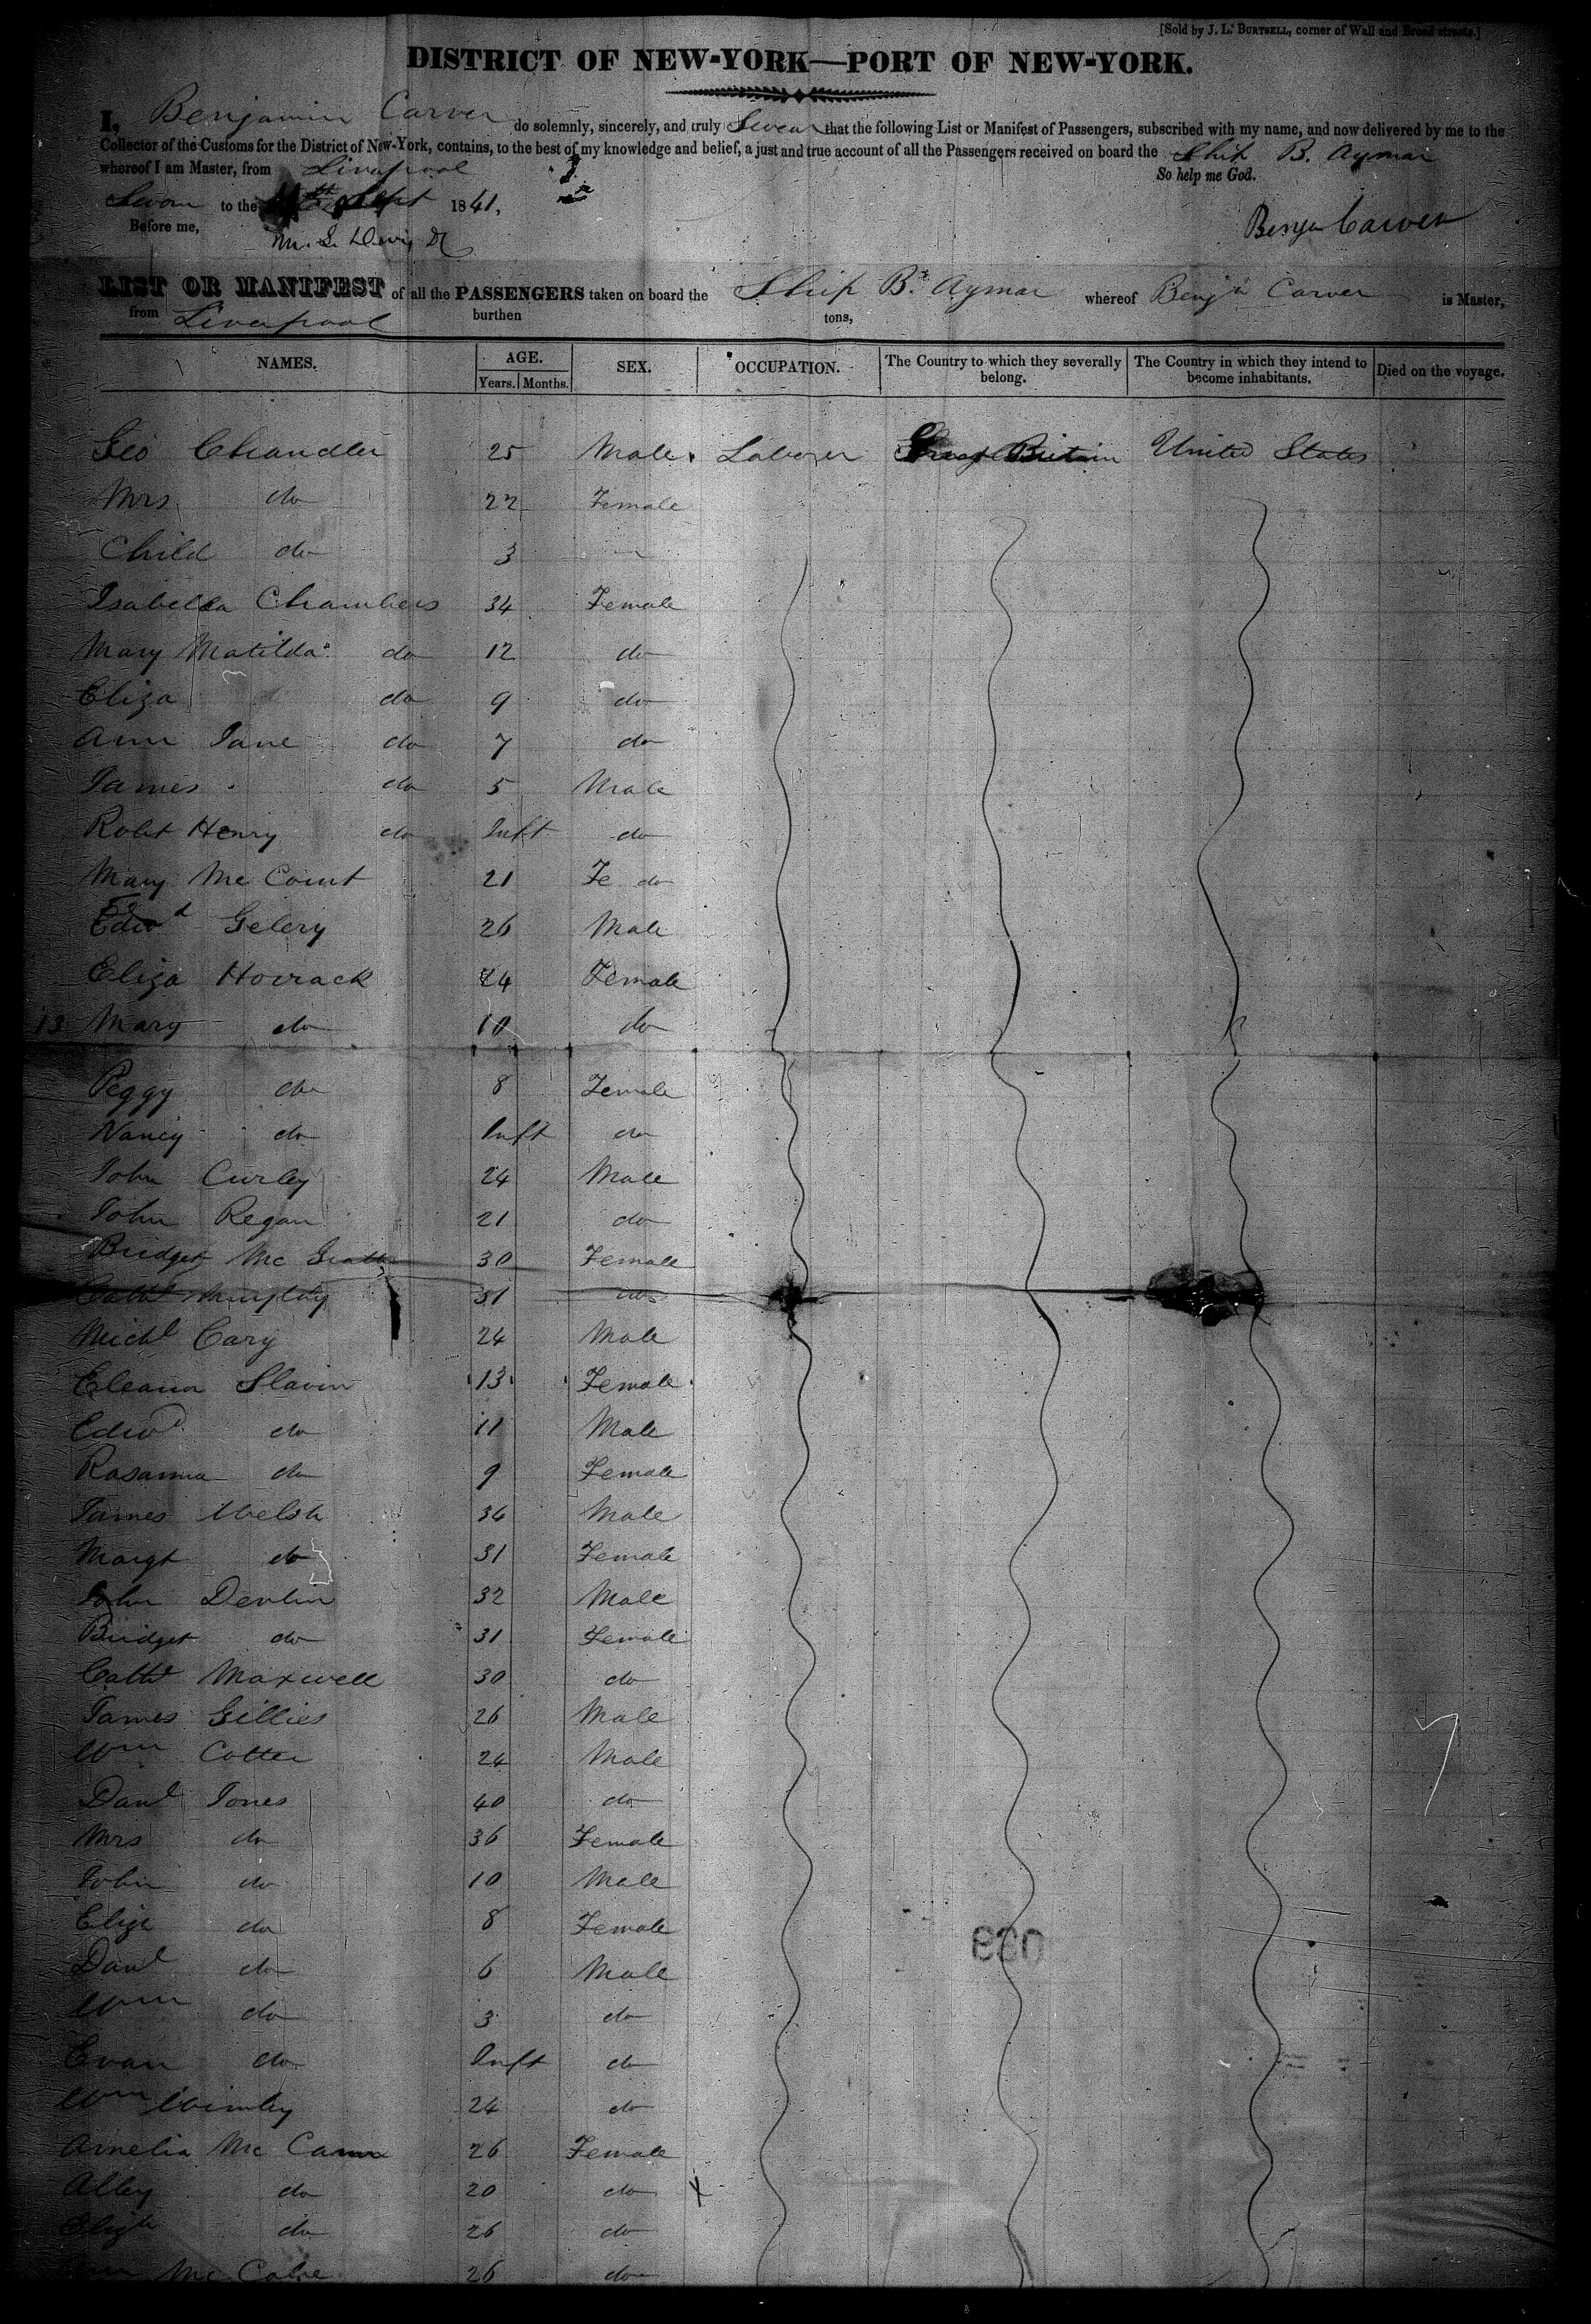 [Sold by J. L. BURTSELL, corner of Wall and Broad streets.]
DISTRICT OF NEW-YORK—PORT OF NEW-YORK.
I, Benjamin Carver do solemnly, sincerely, and truly Swear that the following List or Manifest of Passengers, subscribed with my name, and now delivered by me to the
Collector of the Customs for the District of New-York, contains, to the best of my knowledge and belief, a just and true account of all the Passengers received on board the Ship B. Aymar
whereof I am Master, from Liverpool So help me God.
Sworn to the Sept 1841,
Before me, Benjn Carver
LIST OR MANIFEST of all the PASSENGERS taken on board the Ship B. Aymar whereof Benjn Carver is Master,
from Liverpool burthen tons,
NAMES. AGE. Years. Months. SEX. OCCUPATION. The Country to which they severally belong. The Country in which they intend to become inhabitants. Died on the voyage.
Geo Chandler 25 Male Laborer Great Britain United States
Mrs do 22 Female
Child do 3
Isabella Chambers 34 Female
Mary Matilda do 12 do
Eliza do 9 do
Ann Jane do 7 do
James do 5 Male
Robt Henry do Inft do
Mary Mc Court 21 Fe do
Edwd Gelery 26 Male
Eliza Horrack 24 Female
13 Mary do 10 do
Peggy do 8 Female
Nancy do Inft do
John Curley 24 Male
John Regan 21 do
Bridget Mc Grath 30 Female
Cathe 31 do
Michl Cary 24 Male
Eleanor Slavin 13 Female
Edwd do 11 Male
Rosanna do 9 Female
James Welsh 34 Male
Margt do 31 Female
John Devlin 32 Male
Bridget do 31 Female
Cathe Maxwell 30 do
James Gillies 26 Male
Wm Cotter 24 Male
Danl Jones 40 do
Mrs do 36 Female
John do 10 Male
Eliza do 8 Female
Danl do 6 Male
Wm do 3 do
Evan do Inft do
Wm 24 do
Amelia Mc Cann 26 Female
Alley do 20 do
do 26 do
Mc Cabe 26 do